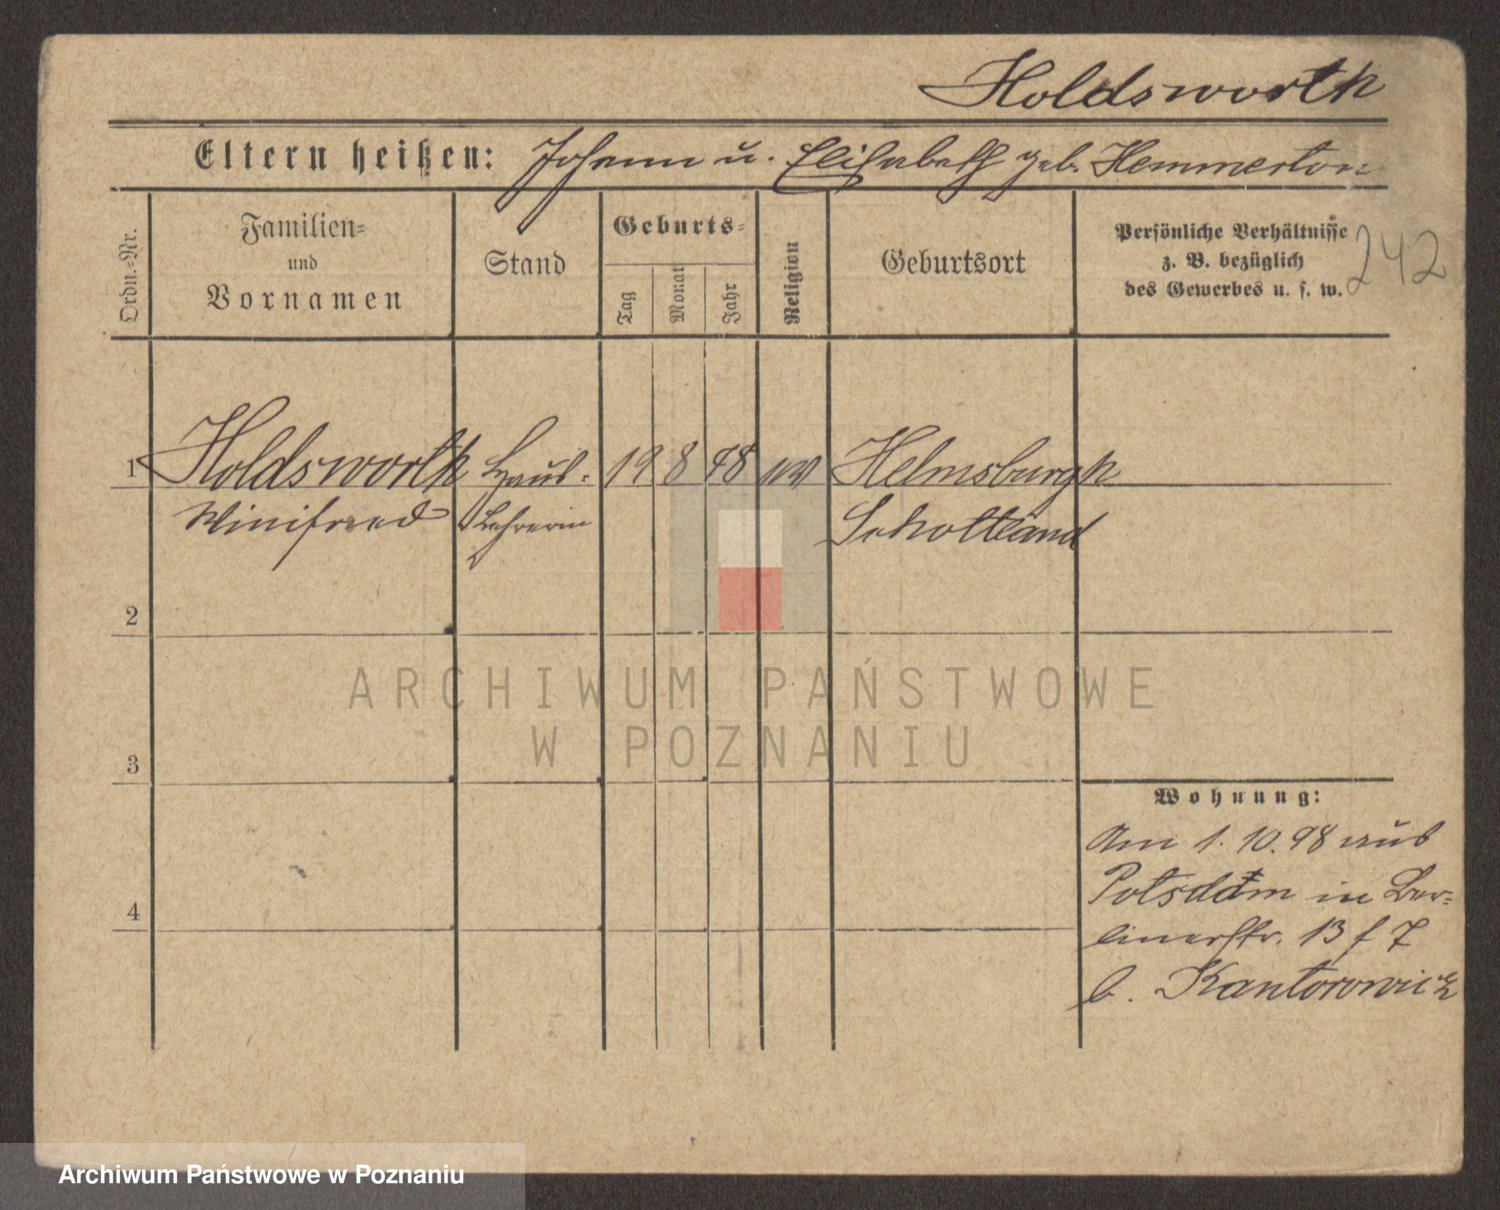 Holdsworth
Eltern heißen: Johann u. Elisabeth geb. Hemmerton
Ordn.-Nr.
Familien-
und
Vornamen
Stand
Geburts-
Tag
Monat
Jahr
Religion
Geburtsort
Persönliche Verhältnisse
z. B. bezüglich
des Gewerbes u. s. w.
242
1 Holdsworth Haus- 19 8 78 Helmsburgh
Winifred Lehrerin Schottland
2
ARCHIWUM PAŃSTWOWE
W POZNANIU
3
Wohnung:
Am 1.10.98 aus
Potsdam in Ber-
linerstr. 13 f 7
b. Kantorowicz
4
Archiwum Państwowe w Poznaniu